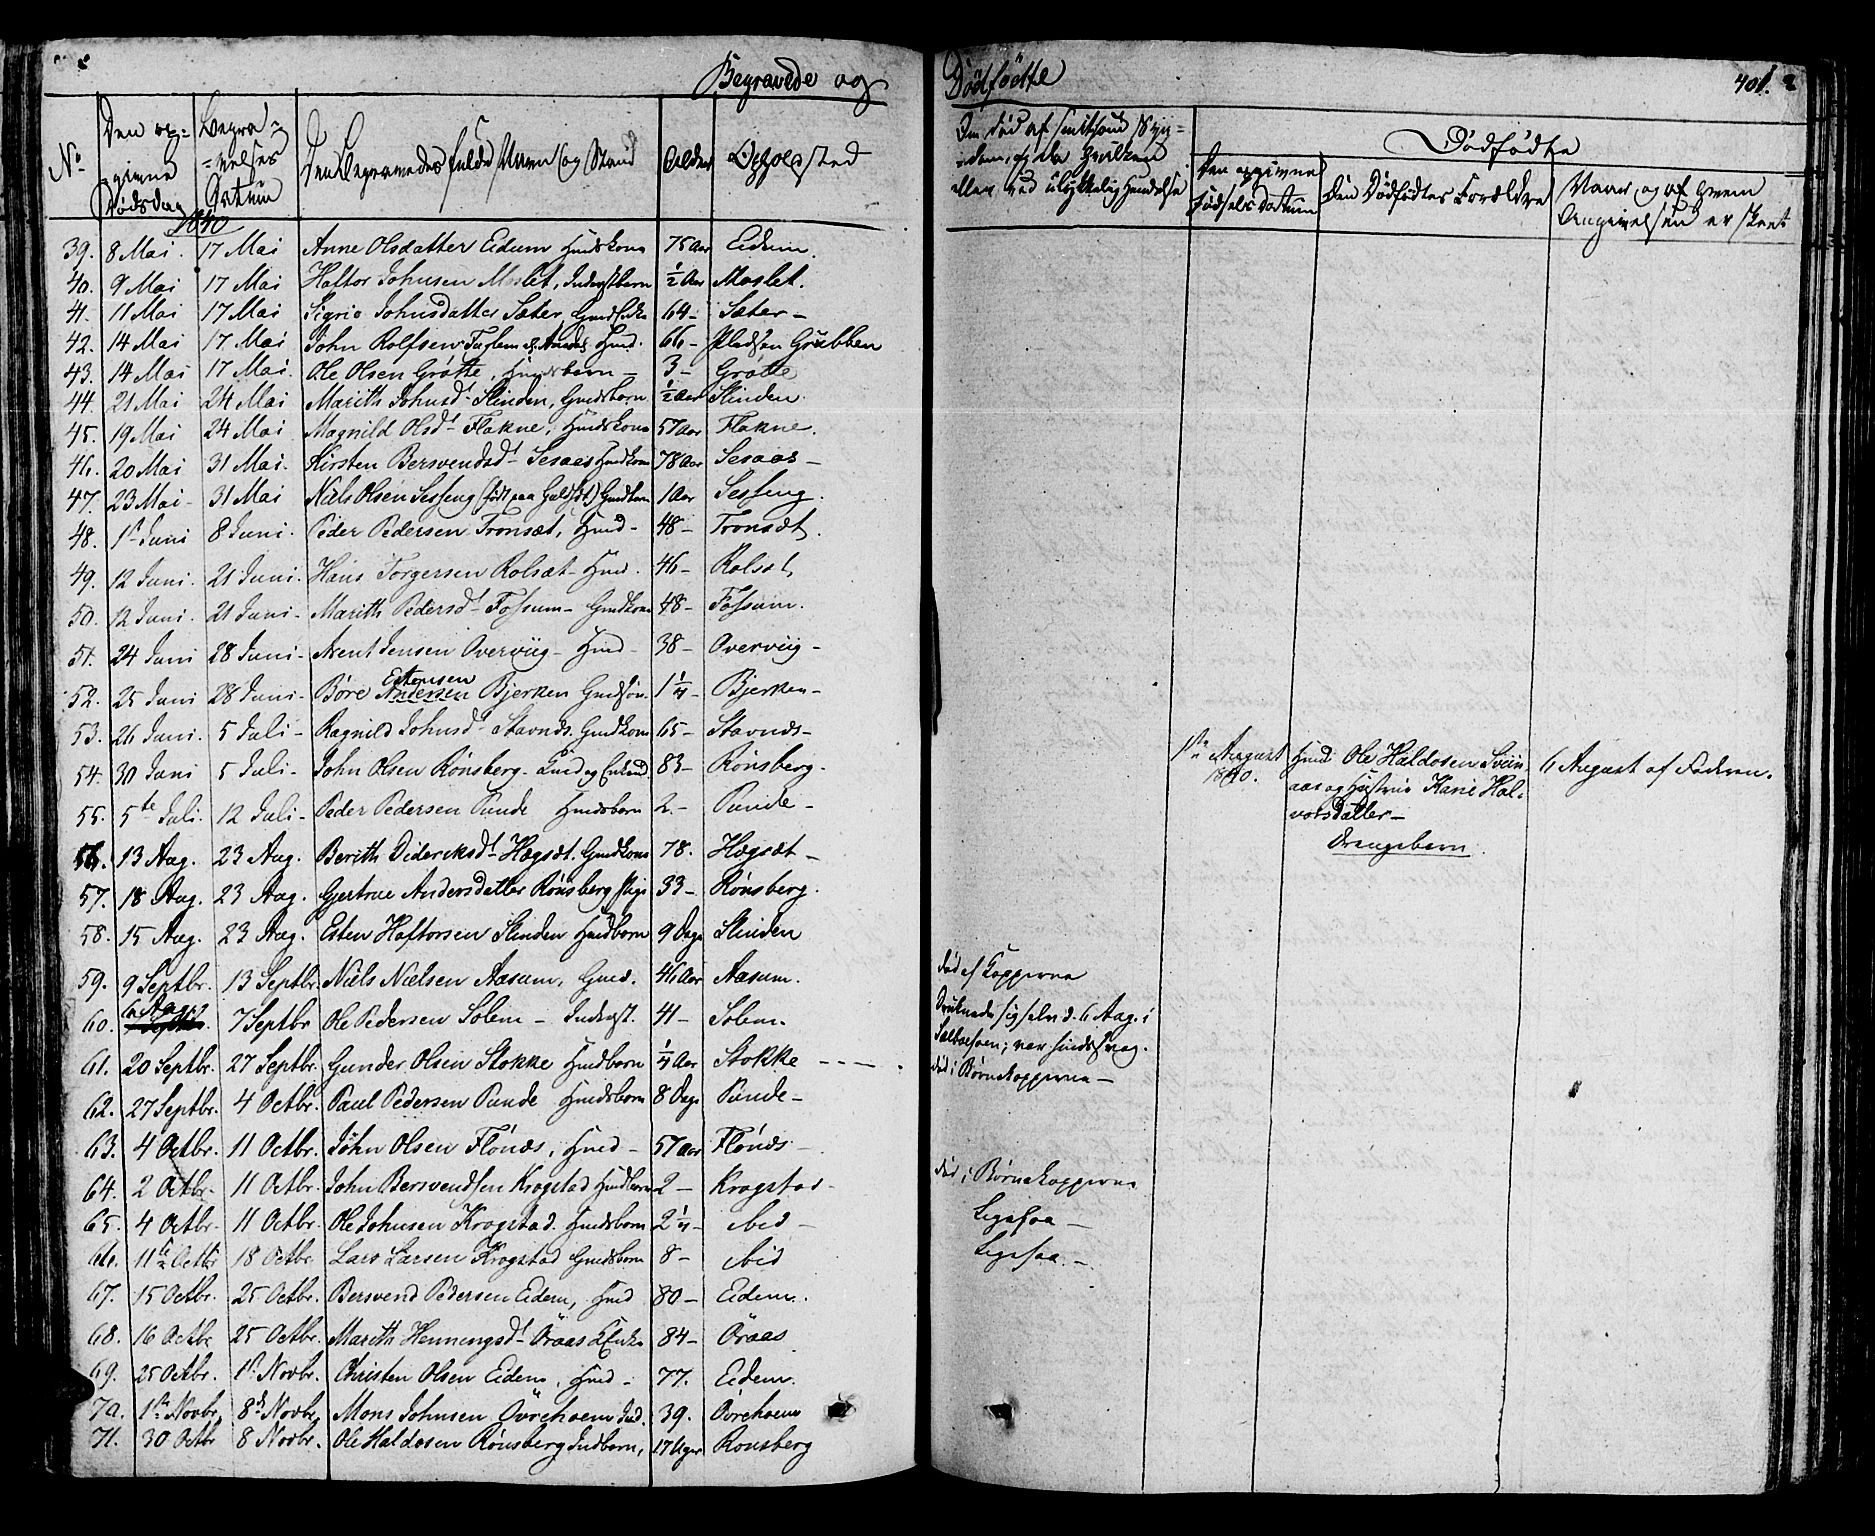 Begravede og
Dødfødte
401.
No
Den op-
givne
Dødsdag
Begra-
velses
Datum
Den Begravedes fulde Navn og Stand
Alder
Opholdssted
Om død af smitsom Syg-
dom, og da hvilken
eller ved ulykkelig Hændelse
Dødfødte
Den opgivne
Fødsels Datum
Den Dødfødtes Forældre
Naar og af hvem
Angivelsen er skeet
1840
39. 8 Mai. 17 Mai Anne Olsdatter Eidum Gmdskone 75 Aar Eidum.
40. 9 Mai 17 Mai Haftor Johnsen Moslet, Inderstbarn ½ Aar Moslet.
41. 11 Mai 17 Mai Sigrie Johnsdatter Sæter, 64 - Sæter -
42. 14 Mai 17 Mai John Rolfsen Fuglem Gmd. 66 - Pladsen Grubben
43. 14 Mai 17 Mai. Ole Olsen Grøtte, Gmdsbarn - 3 - Grøtte
44. 21 Mai 24 Mai Marith Johnsd. Slinden, Gmdsbarn ½ Aar Slinden.
45. 19 Mai 24 Mai Magnild Olsd. Flakne, Gmdskone 57 Aar Flakne.
46. 20 Mai 31 Mai. Kirsten Bersvendsd. Sesaas Gmdkone 78 Aar Sesaas -
47. 23 Mai - 31 Mai Niels Olsen Sesseng (født paa Guldset) Gmdbarn 1 Aar Sesseng.
48. 1ste Juni 8 Juni. Peder Pedersen Tronsæt, Gmd - 48 - Tronsæt.
49. 12 Juni. 21 Juni. Hans Torgersen Rolset - Gmd. 46 - Rolset,
50. 12 Juni. 21 Juni - Marith Pedersd. Fossum - Gmdkone 48 - Fossum.
51. 24 Juni 28 Juni - Arent Jensen Overviig - Gmd - 38 - Overviig -
Estensen
52. 25 Juni 28 Juni - Børe Andersen Bjerken Gmdsøn 1¼ - Bjerken -
53. 26 Juni. 5 Juli - Ragnild Johnsd. Stavnds. Gmdkone 65 - Stavnds -
54. 30 Juni 5 Juli - John Olsen Rønsberg - 83 - Rønsberg -
55. 5te Juli. 12 Juli - Peder Pedersen Punde Gmdsbarn 2 - Punde -
56. 13 Aug. 23 Aug. Berith Dideriksd. Hægsæt. Gmdkone 78. Hægsæt -
57. 18 Aug. 23 Aug. Gjertrue Andersdatter Rønsberg Pige 33 - Rønsberg.
58. 15 Aug. 23 Aug. Esten Haftorsen Slinden Gmdbarn 9 Dage Slinden
59. 9 Septbr. 13 Septbr. Niels Nielsen Aasum, Gmd. 46 Aar Aasum.
død af Kopperne
6 Aug.
60. 7 Septbr Ole Pedersen Solem - Inderst. 41 - Solem -
Druknede sig selv d. 6 Aug. i
Selbusøen; var sindssvag.
61. 20 Septbr. 27 Septbr. Gunder Olsen Stokke Gmdbarn ¼ Aar Stokke - - -
død i Børnekopperne -
62. 27 Septbr. 4 Octbr. Paul Pedersen Punde Gmdsbarn 8 Dage Punde -
63. 4 Octbr. 11 Octbr. John Olsen Flønæs, Gmd - 57 Aar Flønds -
64. 2 Octbr. 11 Octbr. John Bersvendsen Krogstad Gmdbarn 2 - Krogstad -
død i Børnekopperne
65. 4 Octbr. 11 Octbr. Ole Johnsen Krogstad. Gmdsbarn 2¼ - ibid -
Ligesaa -
66. 11te Octbr 18 Octbr Lars Larsen Krogstad Gmdsbarn 8 - ibid
Ligesaa -
67. 15 Octbr. 25 Octbr. Bersvend Pedersen Eidem, Gmd 80 - Eidem.
68. 16 Octbr 25 Octbr. Marith Henningsd. Øraas Enke 84 - Øraas
69. 25 Octbr. 1ste Novbr. Christen Olsen Eidem, Gmd - 77. Eidem.
70. 1ste Novbr. 8de Novbr. Mons Johnsen Øvrehoem Ind. 39. Øvrehoem
71. 30 Octbr 8 Novbr. Ole Haldosen Rønsberg Indbarn, 17 Uger Rønsberg
1ste August
1840.
Gmd. Ole Haldosen Svein-
aas og Hustrue Karie Hal-
vorsdatter -
Drengebarn.
6 August af Faderen.